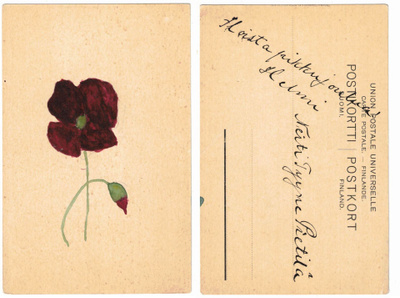 UNION POSTALE UNIVERSELLE
CARTE POSTALE. — FINLANDE.
POSTIKORTTI | POSTKORT
SUOMI. FINLAND.
Helmi
Neiti Tyyne Pietilä